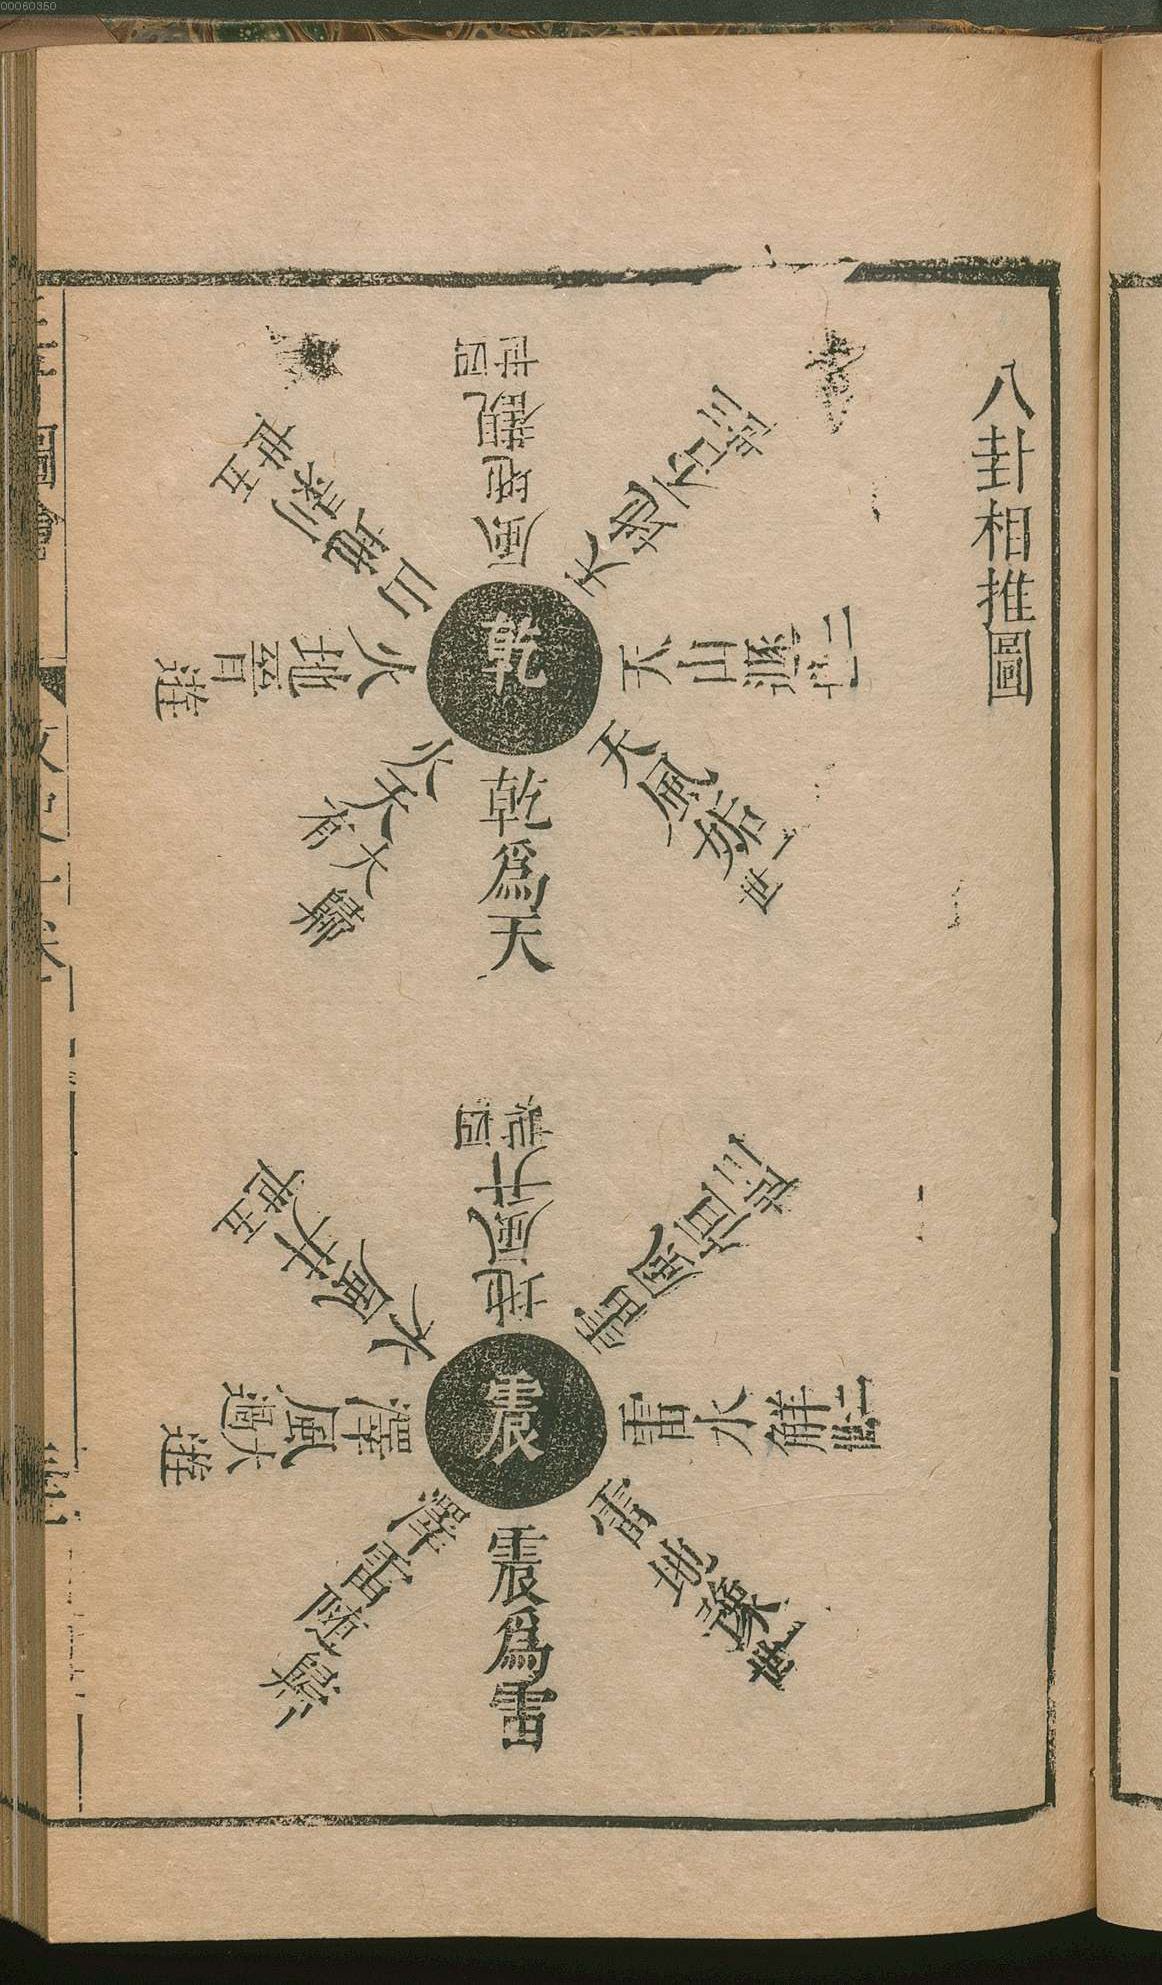 00060350
八卦相推圖
乾
乾爲天
天風姤一世
天山遯二世
天地否三世
風地觀四世
山地剝五世
火地晉遊
火天大有歸
震
震爲雷
雷地豫一世
雷水解二世
雷風恒三世
地風升四世
水風井五世
澤風大過遊
澤雷隨歸
圖會
文史一卷